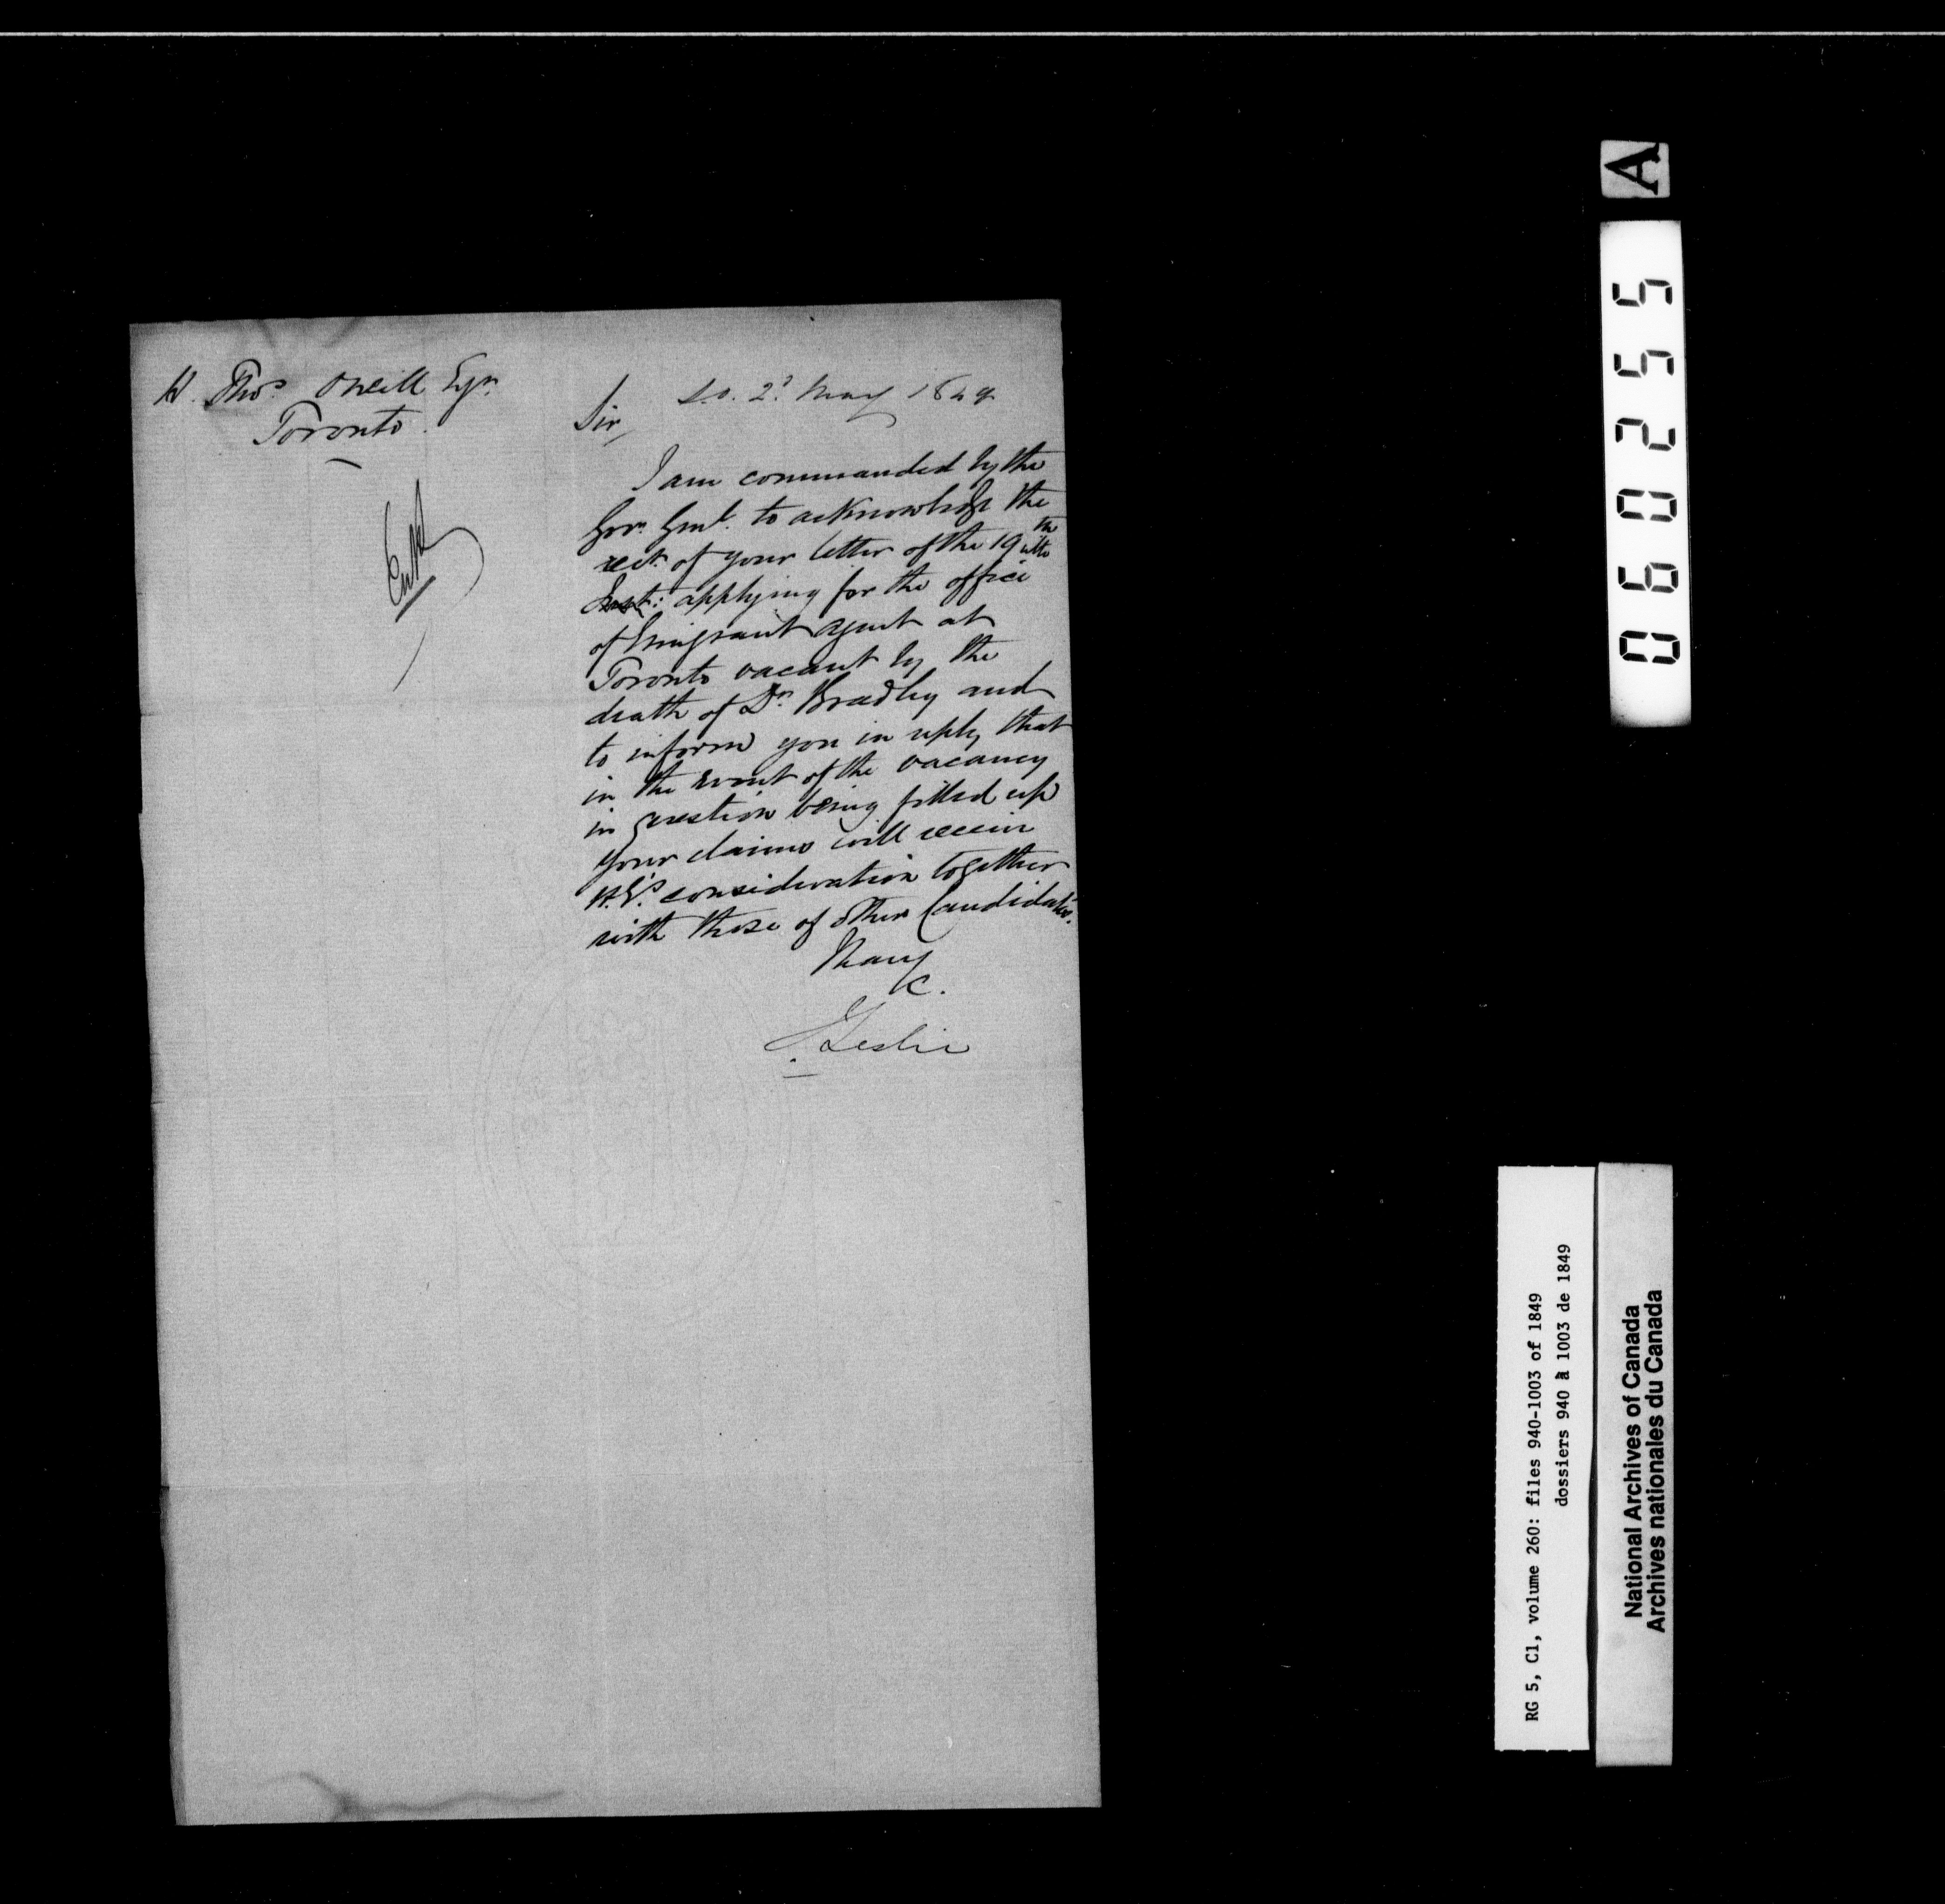 H. Thos. ONeill Esqr.
Toronto.
Entd
S.O. 2d May 1849
Sir,
I am commanded by the
Govr. Genl. to acknowledge the
rect. of your letter of the 19th ulto
Inst: applying for the office
of Emigrant agent at
Toronto vacant by the
death of Dr. Bradley and
to inform you in reply that
in the event of the vacancy
in question being filled up
your claims will receive
H.E's consideration together
with those of other Candidates.
I have
&c.
J. Leslie
A
060255
RG 5, C1, volume 260: files 940-1003 of 1849
dossiers 940 à 1003 de 1849
National Archives of Canada
Archives nationales du Canada